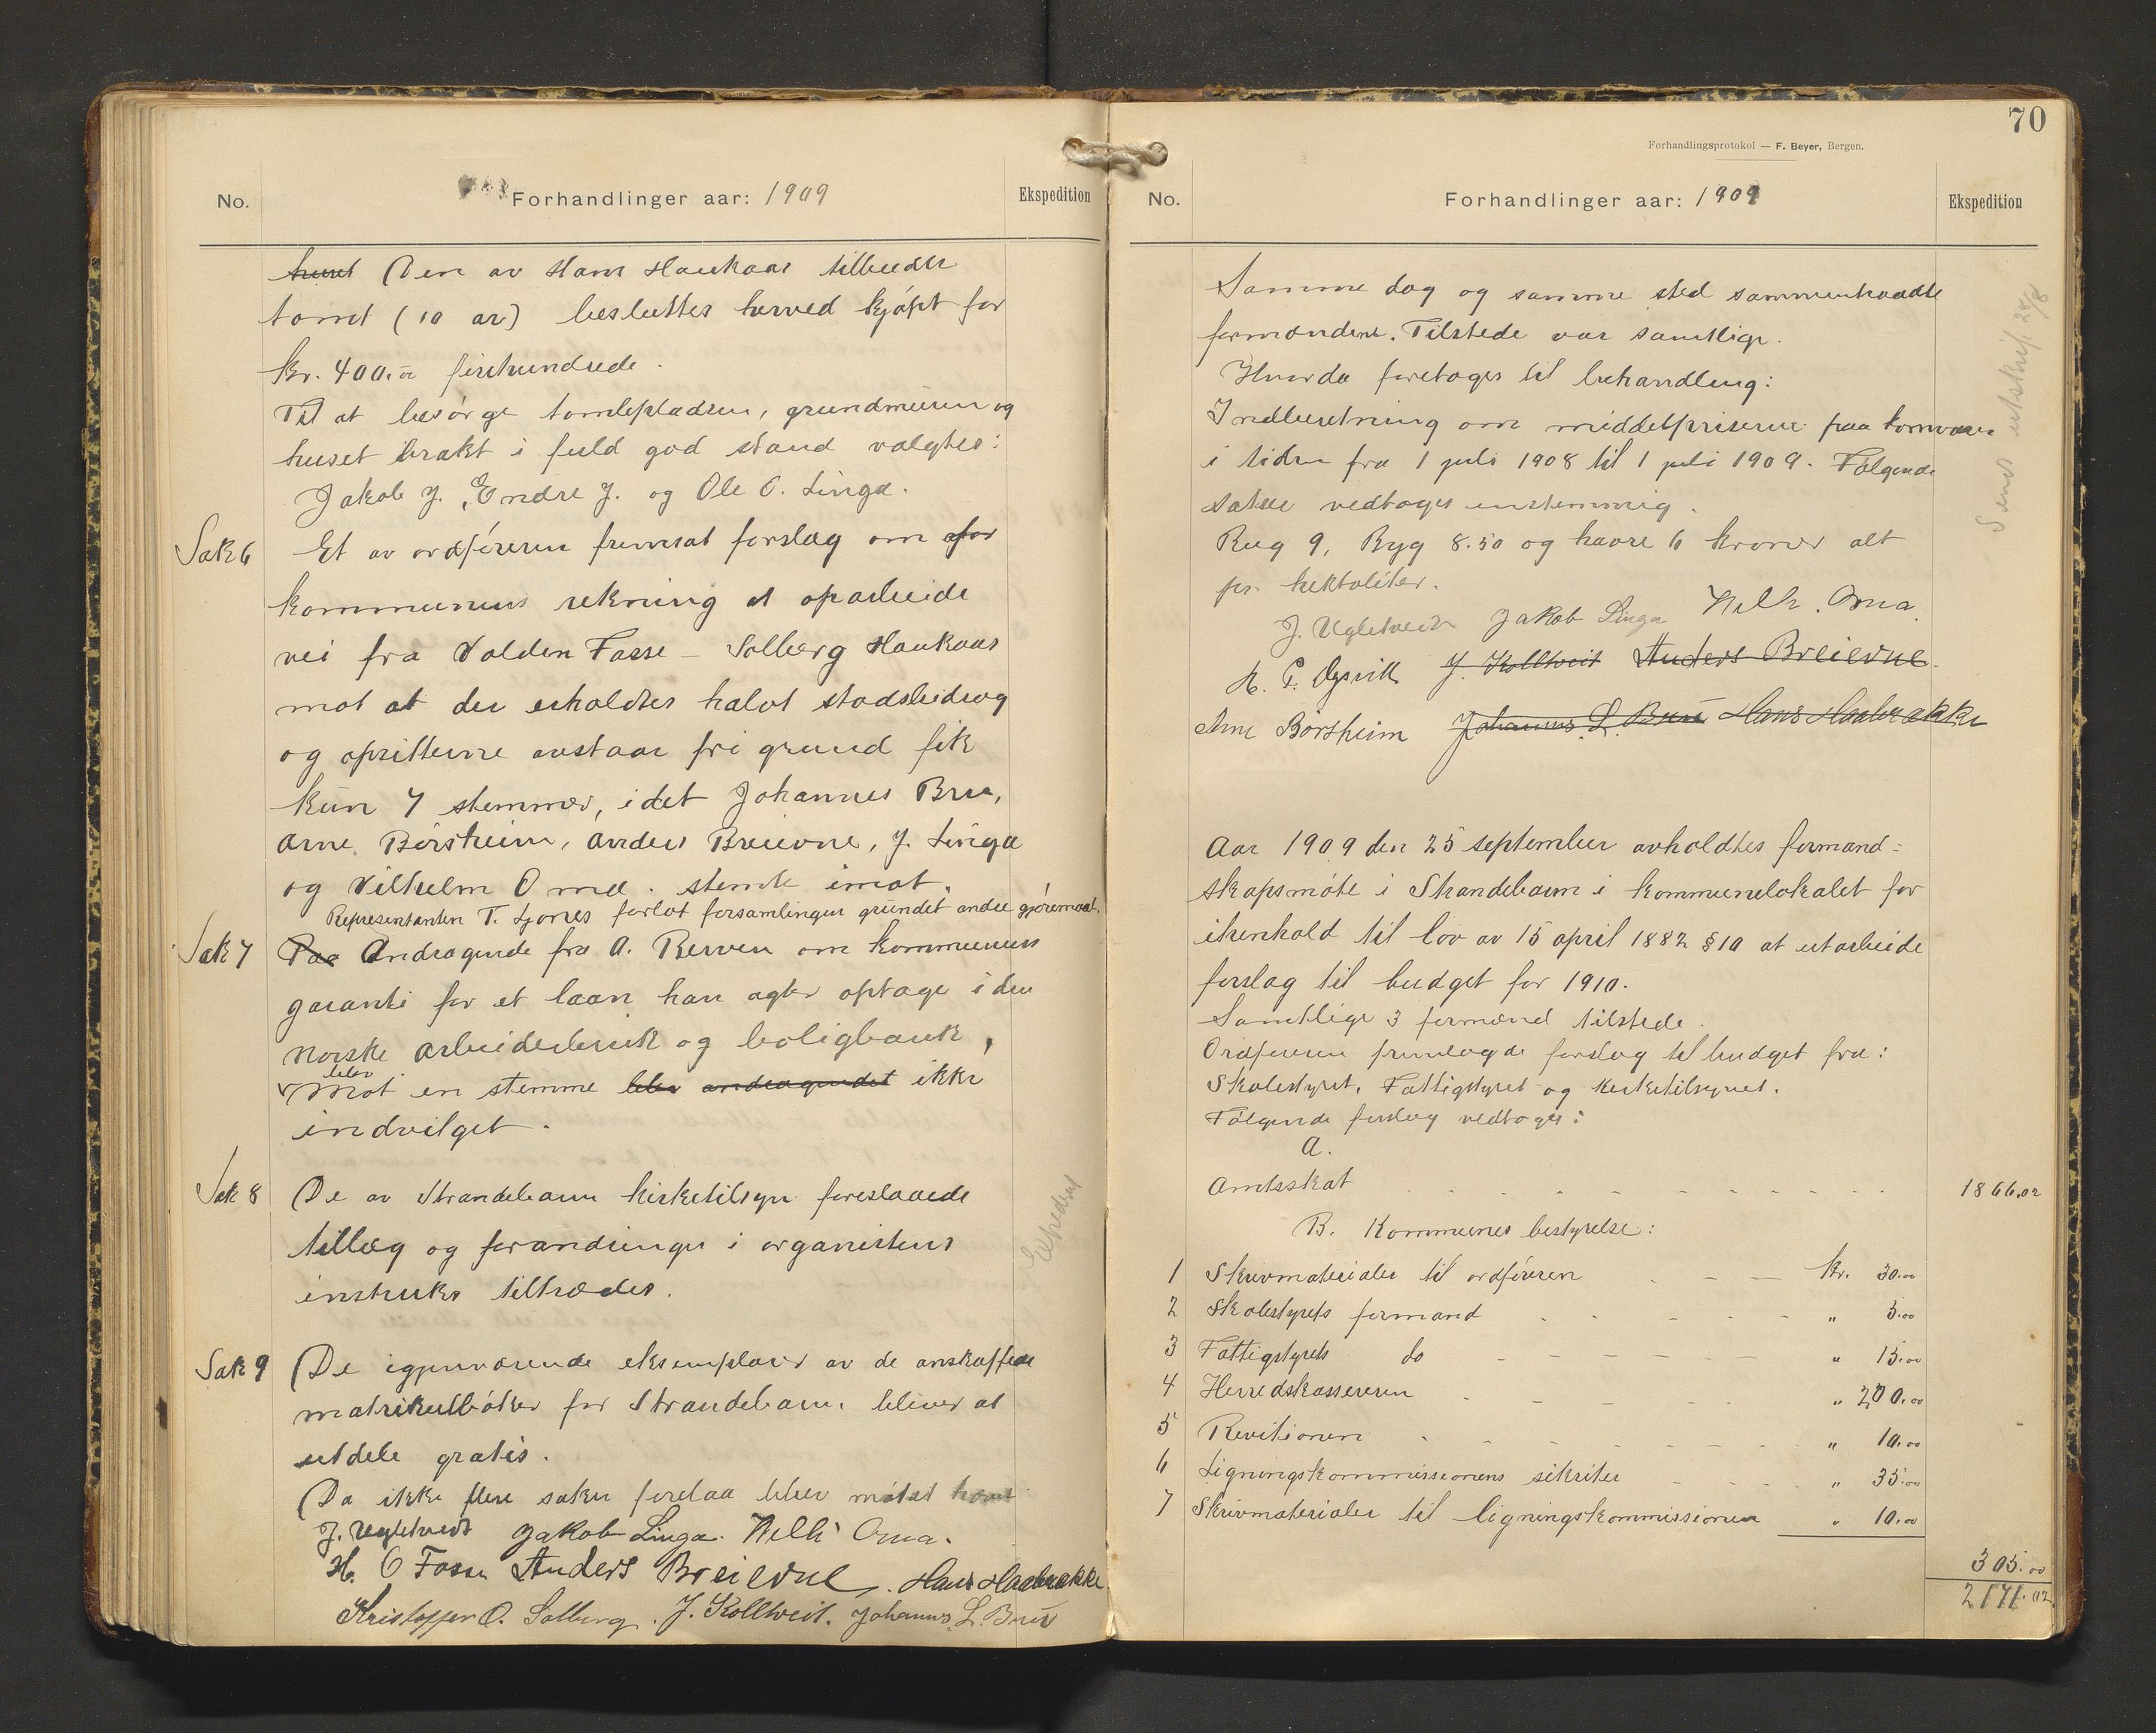 No.
Forhandlinger aar: 1909
Ekspedition
huset Den av Hans Haukaas tilbudte
tomt (10 ar) besluttes herved kjøpt for
kr. 400.00 firehundrede.
Til at besørge tomtepladsen, grundmuren og
huset brakt i fuld god stand valgtes:
Jakob J., Endre J. og Ole O. Linga.
Sak 6 Et av ordføreren fremsat forslag om for
kommunens rekning at oparbeide
vei fra Valden Fosse - Solberg Haukaas
mot at der erholdtes halvt stadsbidrag
og opsitterne avstaar fri grund fik
kun 7 stemmer, idet Johannes Bru,
Arne Børsheim, Anders Breievne, J. Linga
og Vilhelm Oma. stemte imot.
Representanten T. Ljones forlot forsamlingen grundet andre gjøremaal.
Sak 7 Paa Andragende fra A. Rerven om kommunens
garanti for et laan han agter optage i den
norske arbeiderbruk og boligbank,
blev
Mot en stemme blev andragendet ikke
indvilget.
Sak 8 De av Strandebarm kirketilsyn foreslaaede
tillæg og forandringer i organistens
instruks tiltrædes.
Ekspedert
Sak 9 De igjenværende eksemplarer av de anskaffede
matrikulbøker for Strandebarm bliver at
utdele gratis.
Da ikke flere saker forelaa blev møtet hævet
J. Ugletveit Jakob Linga. Vilh. Oma.
H. O Fosse Anders Breievne. Hans Haabrekke
Kristoffer O. Solberg. J. Kolltveit. Johannes L. Bru
70
Forhandlingsprotokol — F. Beyer, Bergen.
No.
Forhandlinger aar: 1909
Ekspedition
Samme dag og samme sted sammentraadte
formændene. Tilstede var samtlige.
Hvorda foretoges til behandling:
Indberetning om middelpriserne paa kornvarer
i tiden fra 1 juli 1908 til 1 juli 1909. Følgende
satser vedtoges enstemmig.
Rug 9, Byg 8.50 og havre 6 kroner alt
pr. hektoliter.
Sendt utskrift 28/8
J. Ugletveit Jakob Linga Vilh. Oma.
J. Kolltveit Anders Breievne.
Arne Børsheim Johannes L. Bru Hans Haabrekke
Aar 1909 den 25 september avholdtes formand-
skapsmøte i Strandebarm i kommunelokalet for
ihenhold til lov av 15 april 1882 § 10 at utarbeide
forslag til budget for 1910.
Samtlige 3 formænd tilstede.
Ordføreren fremlagde forslag til budget fra:
Skolestyret, Fattigstyret og kirketilsynet.
Følgende forslag vedtoges:
A.
Amtsskat 1866,02
B. Kommunes bestyrelse:
1 Skrivmaterialer til ordføreren kr. 30.00
2 Skolestyrets formand " 5.00
3 Fattigstyrets do " 15.00
4 Herredskassereren " 200.00
5 Revitionen " 10.00
6 Ligningskommissionens sekriter " 35.00
7 Skrivmaterialer til ligningskommissionen " 10.00
305.00
2171.02